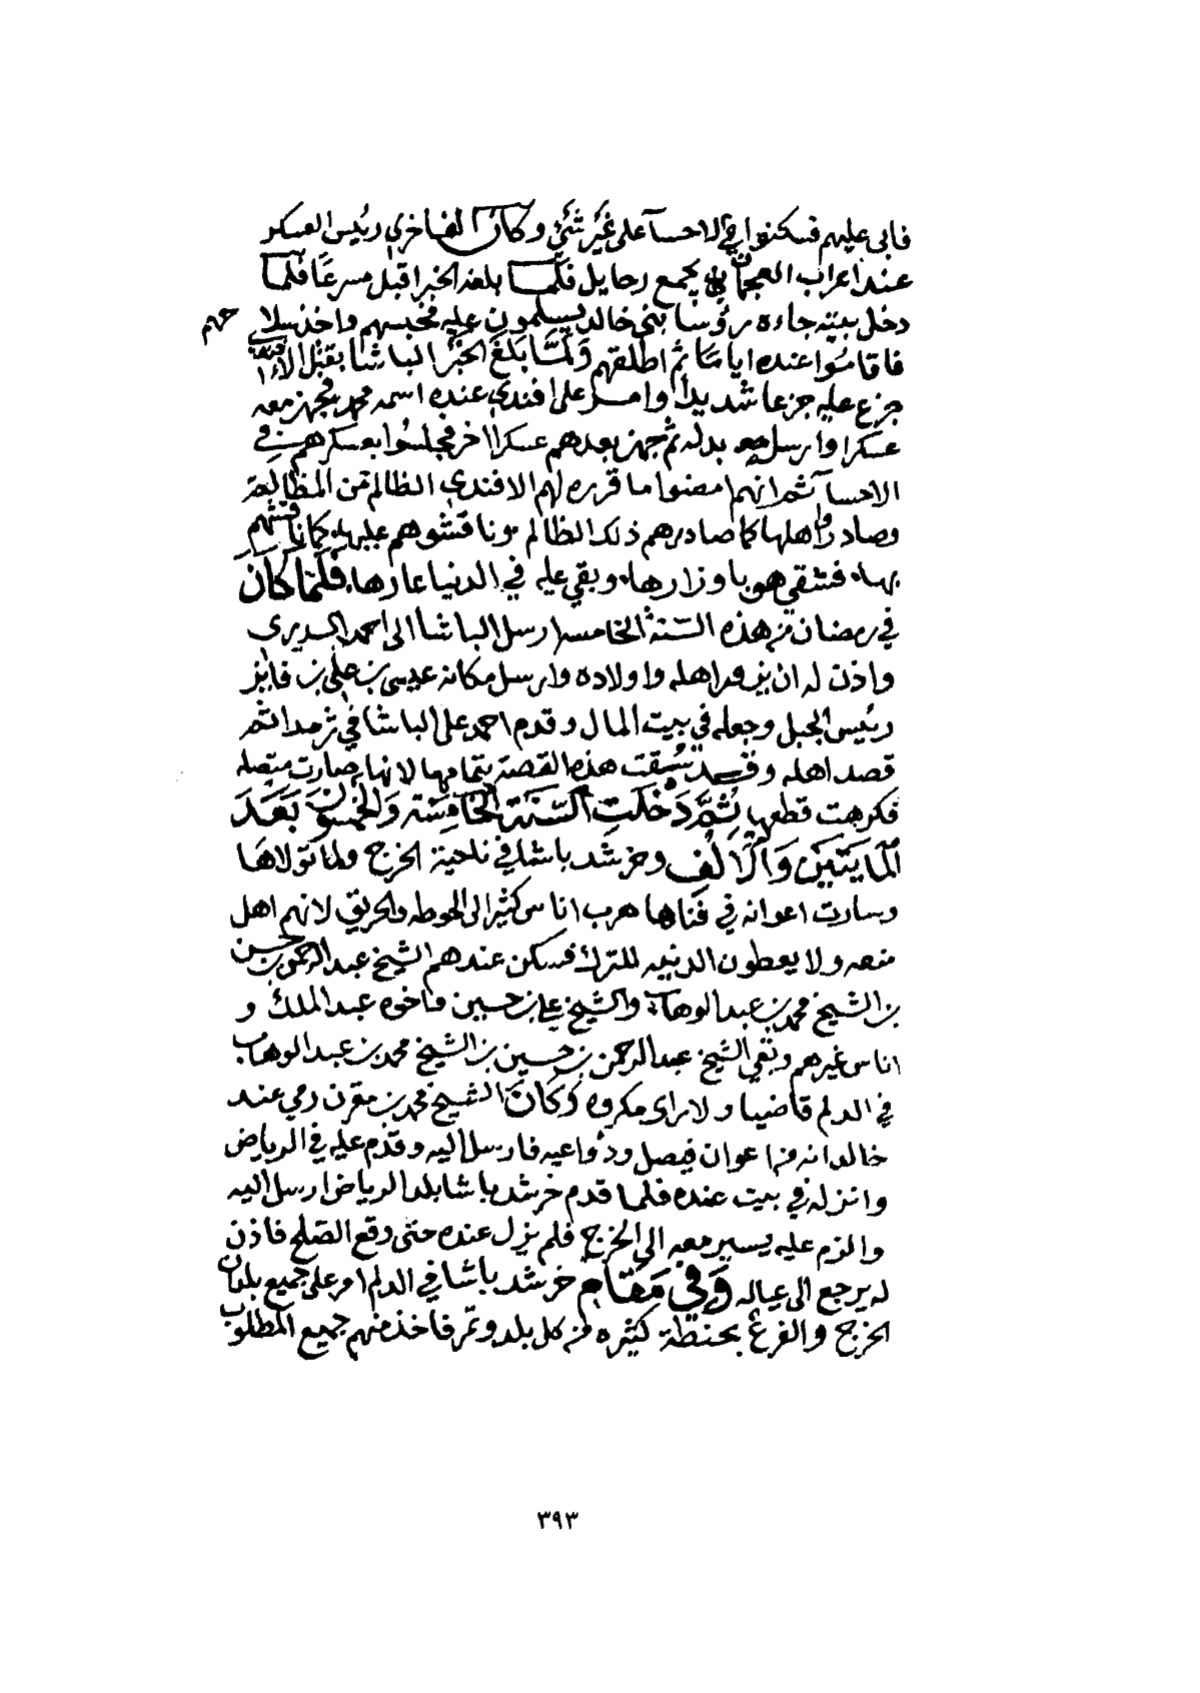 فابى عليهم فسكنوا في الاحسآ على غير شيٍّ وكان الفاخري رئيس العسكر
عند اعراب العجمان يجمع رحايل فلما بلغه الخبر اقبل مسرعًا فلما
دخل بيته جاءه رؤسا بني خالد يسلمون عليه فحبسهم واخذ سلاحهم
فاقاموا عنده اياما ثم اطلقهم ولما بلغ الخبر الباشا بقتل الافندي
جزع عليه جزعا شديدا وامر على افندي عنده اسمه محمد فجهز معه
عسكرا وارسل معه بدله ثم جهز بعدهم عسكرا اخر فجلسوا بعسكرهم في
الاحسآ ثم انهم امضوا ما قرره لهم الافندي الظالم من المظالم
وصادروا اهلها كما صادرهم ذلك الظالم وناقشوهم عليها كما ناقشهم
بها فشقي هو باوزارها وبقي عليه في الدنيا عارها فلما كان
في رمضان من هذه السنة الخامسة ارسل الباشا الى احمد السديري
واذن له ان يزور اهله واولاده وارسل مكانه عيسى بن علي بن فايز
رئيس الجبل وجعله في بيت المال وقدم احمد على الباشا في ثرمدا ثم
قصد اهله وقد سقت هذه القصة بتمامها لانها صارت متصله
فكرهت قطعها ثم دخلت السنة الخامسة والخمسون بعد
المايتين والالف وخرشد باشا في ناحية الخرج ولما تولاها
وسارت اعوانه في فناها هرب اناس كثير الى الحوطه والحريق لانهم اهل
منعه ولا يعطون الدنيه للترك فسكن عندهم الشيخ عبدالرحمن بن حسن
بن الشيخ محمد بن عبدالوهاب والشيخ علي بن حسين واخوه عبد الملك و
اناس غيرهم وبقي الشيخ عبدالرحمن بن حسين بن الشيخ محمد بن عبدالوهاب
في الدلم قاضيا ولا راى مكروه وكان الشيخ محمد بن مقرن رمي عند
خالد انه من اعوان فيصل ودواعيه فارسل اليه وقدم عليه في الرياض
وانزله في بيت عنده فلما قدم خرشد باشا بلد الرياض ارسل اليه
والزم عليه يسير معه الى الخرج فلم يزل عنده حتى وقع الصلح فاذن
له يرجع الى عياله وفي مقام خرشد باشا في الدلم امر على جميع بلدان
الخرج والفرع بحنطة كثيره من كل بلد وتمر فاخذ منهم جميع المطلوب
٣٩٣